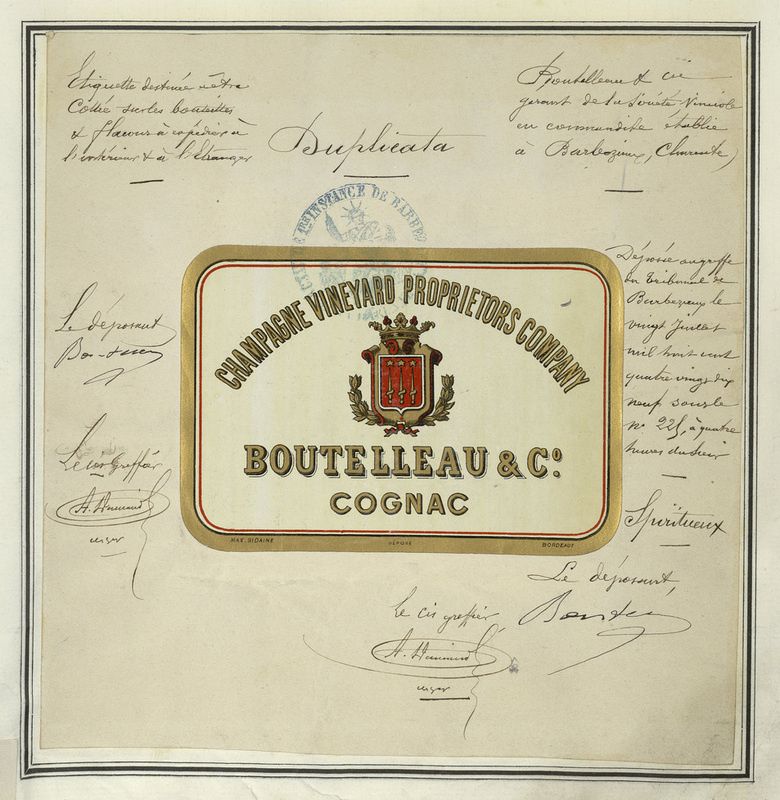 Etiquette destinée à être
Collée sur les bouteilles
& flacons à expédier à
l'intérieur & à l'Etranger
Duplicata
Boutelleau & cie
gérant de la Société Vinicole
en commandite établie
à Barbezieux, (Charente)
1ERE INSTANCE DE BARBE
CHAMPAGNE VINEYARD PROPRIETORS COMPANY
BOUTELLEAU & Cº.
COGNAC
MAX. SIDAINE
DÉPOSÉ
BORDEAUX
Déposée au greffe
du Tribunal de
Barbezieux le
vingt Juillet
mil huit cent
quatre vingt dix
neuf sous le
nº 225, à quatre
heures du soir
Spiritueux
Le déposant
Le cis greffier
Le déposant,
Le cis greffier,